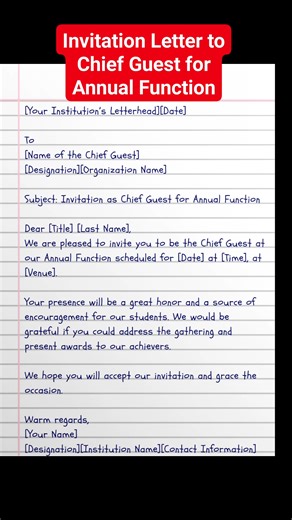 Invitation Letter to
Chief Guest for
Annual Function
[Your Institution's Letterhead][Date]
To
[Name of the Chief Guest]
[Designation][Organization Name]
Subject: Invitation as Chief Guest for Annual Function
Dear [Title] [Last Name],
We are pleased to invite you to be the Chief Guest at
our Annual Function scheduled for [Date] at [Time], at
[Venue].
Your presence will be a great honor and a source of
encouragement for our students. We would be
grateful if you could address the gathering and
present awards to our achievers.
We hope you will accept our invitation and grace the
occasion.
Warm regards,
[Your Name]
[Designation][Institution Name][Contact Information]